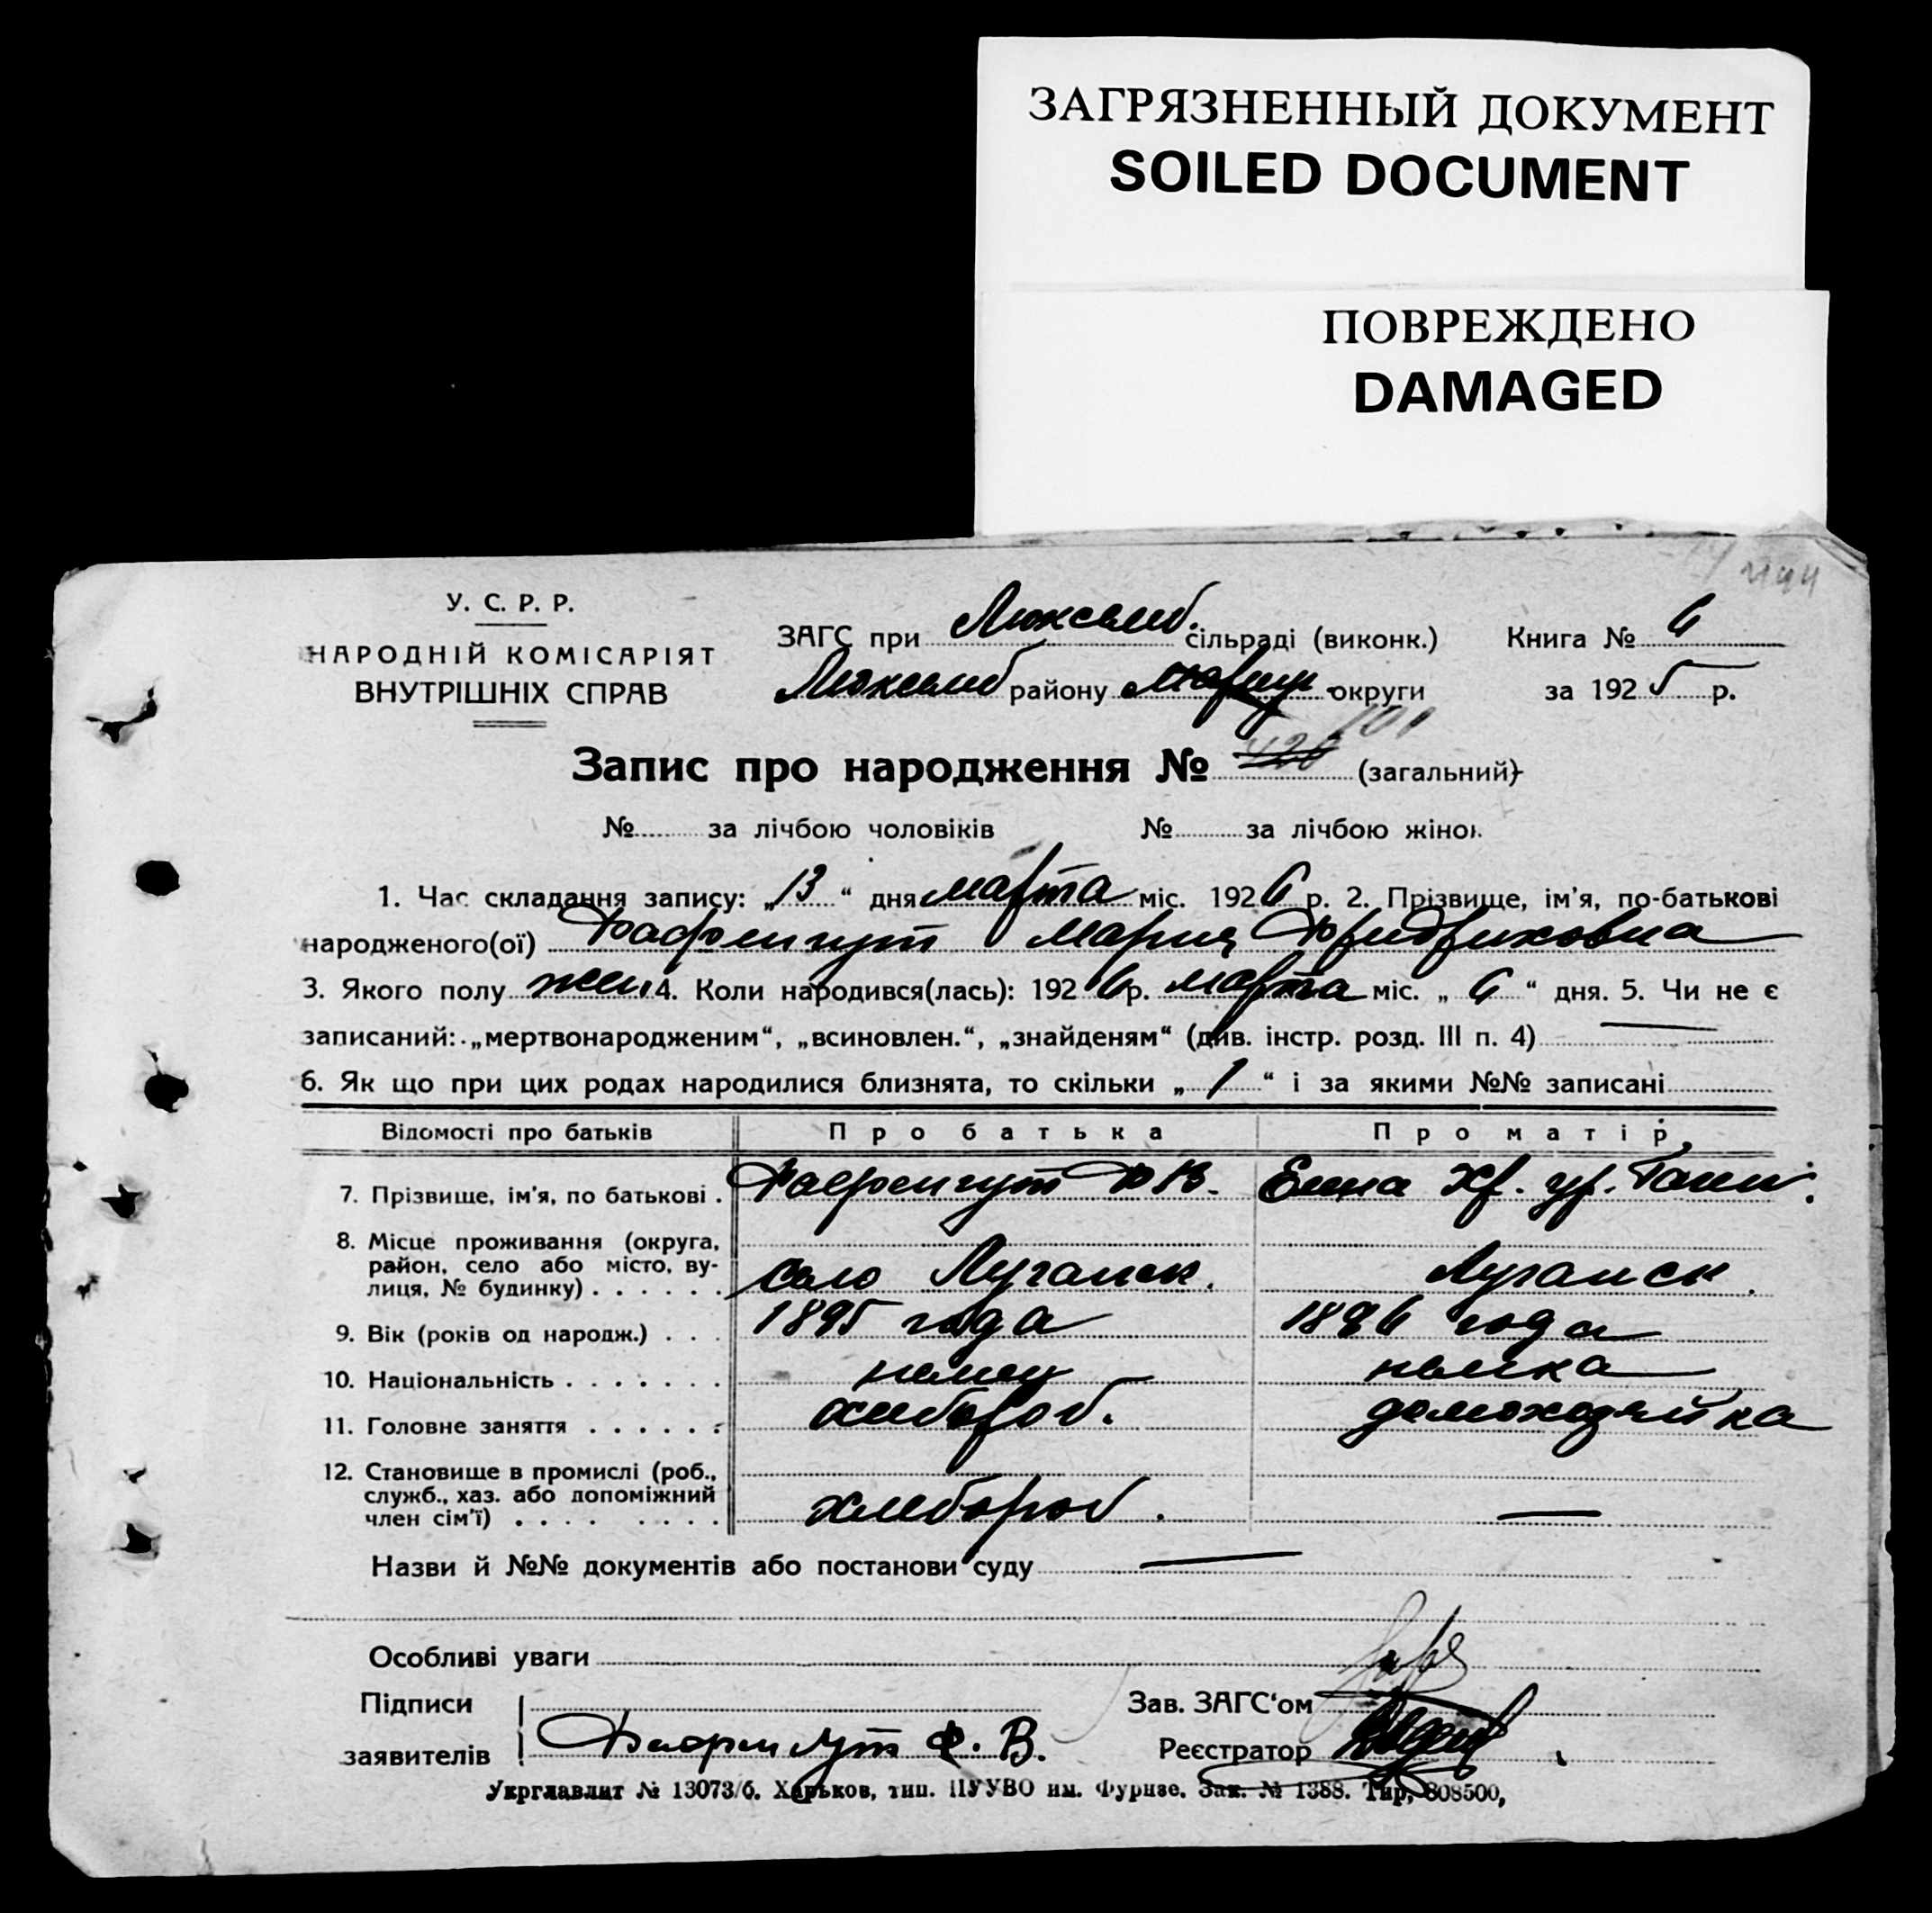 ЗАГРЯЗНЕННЫЙ ДОКУМЕНТ
SOILED DOCUMENT
ПОВРЕЖДЕНО
DAMAGED
У. С. Р. Р.
НАРОДНІЙ КОМІСАРІЯТ
ВНУТРІШНІХ СПРАВ
ЗАГС при Люксемб. сільраді (виконк.) Книга № 6
Люксемб району Мариуп. округи за 1925 р.
Запис про народження № 426 101 (загальний)
№ за лічбою чоловіків № за лічбою жінок
1. Час складання запису: „13“ дня марта міс. 1926 р. 2. Прізвище, ім'я, по-батькові
народженого(ої) Мария Фридриховна
3. Якого полу жен 4. Коли народився(лась): 1926 р. марта міс. „6“ дня. 5. Чи не є
записаний: „мертвонародженим“, „всиновлен.“, „знайденям“ (див. інстр. розд. III п. 4) —
6. Як що при цих родах народилися близнята, то скільки „1“ і за якими №№ записані
Відомості про батьків Про батька Про матір
7. Прізвище, ім'я, по батькові . Ф В. Хр. ур.
8. Місце проживання (округа,
район, село або місто, ву-
лиця, № будинку) . . . . . . село Луганск. Луганск.
9. Вік (років од народж.) . . . 1895 года 1896 года
10. Національність . . . . . . . немец немка
11. Головне заняття . . . . . . хлебороб. домохозяйка
12. Становище в промислі (роб.,
служб., хаз. або допоміжний
член сім'ї) . . . . . . . . хлебороб. —
Назви й №№ документів або постанови суду —
Особливі уваги
Підписи Зав. ЗАГС'ом
заявителів Ф. В. Реєстратор
Укрглавлит № 13073/б. Харьков, тип. ПУУВО им. Фурнзе. Зак. № 1388. Тир, 808500,